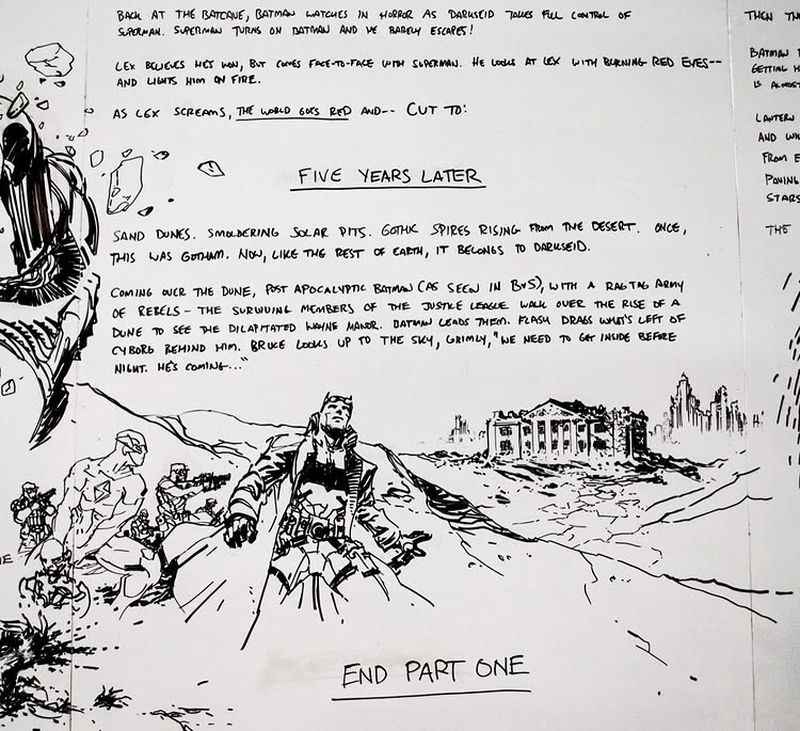 BACK AT THE BATCAVE, BATMAN WATCHES IN HORROR AS DARKSEID TAKES FULL CONTROL OF
SUPERMAN. SUPERMAN TURNS ON BATMAN AND HE BARELY ESCAPES!
LEX BELIEVES HE'S WON, BUT COMES FACE-TO-FACE WITH SUPERMAN. HE LOOKS AT LEX WITH BURNING RED EYES--
AND LIGHTS HIM ON FIRE.
AS LEX SCREAMS, THE WORLD GOES RED AND-- CUT TO:
FIVE YEARS LATER
SAND DUNES. SMOLDERING SOLAR PITS. GOTHIC SPIRES RISING FROM THE DESERT. ONCE,
THIS WAS GOTHAM. NOW, LIKE THE REST OF EARTH, IT BELONGS TO DARKSEID.
COMING OVER THE DUNE, POST APOCALYPTIC BATMAN (AS SEEN IN BvS), WITH A RAGTAG ARMY
OF REBELS - THE SURVIVING MEMBERS OF THE JUSTICE LEAGUE WALK OVER THE RISE OF A
DUNE TO SEE THE DILAPITATED WAYNE MANOR. BATMAN LEADS THEM. FLASH DRAGS WHAT'S LEFT OF
CYBORG BEHIND HIM. BRUCE LOOKS UP TO THE SKY, GRIMLY, "WE NEED TO GET INSIDE BEFORE
NIGHT. HE'S COMING..."
END PART ONE
THEN
BATMAN
GETTING
IS ALMOST
LANTERN
AND
FROM
STARS
THE